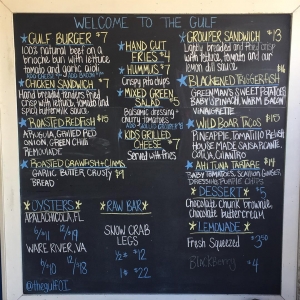 WELCOME TO THE GULF
GULF BURGER $7
100% natural beef on a
brioche bun with lettuce
tomato and garlic aioli
ADD CHEESE $1 ADD BACON
CHICKEN SANDWICH $7
hand breaded tenders fried
crisp with lettuce, tomato and
spicy buttermilk sauce
ROASTED REDFISH $15
Arugula, grilled red
onion, green chili
remoulade
ROASTED CRAWFISH + CLAMS
GARLIC BUTTER, CRUSTY $9
BREAD
HAND CUT
FRIES $4
HUMMUS $7
Crispy pita chips
MIXED GREEN
SALAD $5
Balsamic dressing
cherry tomatoes
KIDS GRILLED
CHEESE $7
Served with fries
GROUPER SANDWICH $13
Lightly breaded and fried crisp
with lettuce, tomato and our
lemon dill sauce
BLACKENED TRIGGERFISH $14
GREENMAN'S SWEET POTATOES
BABY SPINACH, WARM BACON
VINAIGRETTE
WILD BOAR TACOS $15
PINEAPPLE, TOMATILLO RELISH
HOUSE MADE SALSA PICANTE,
COTIJA, CILANTRO
AHI TUNA TARTARE $14
BABY TOMATOES, SCALLION, GINGER
DRESSING, POTATO CHIPS
DESSERT $5
Chocolate Chunk brownie
Chocolate buttercream
LEMONADE
Fresh Squeezed $3.50
Blackberry $4
OYSTERS
APALACHICOLA, FL
6/$11 12/$19
WARE RIVER, VA
6/$10 12/$18
@thegulfOI
RAW BAR
SNOW CRAB
LEGS
½ = $12
1 = $22